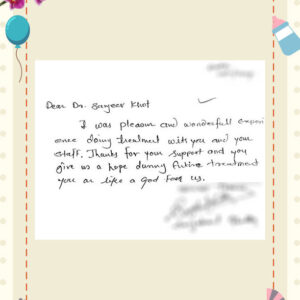 Dear Dr. Sayeer Khot
I was pleasure and wonderfull experi
ence doing treatment with you and your
staff. Thanks for your support and you
give us a hope during future treatment
you are like a God for us.